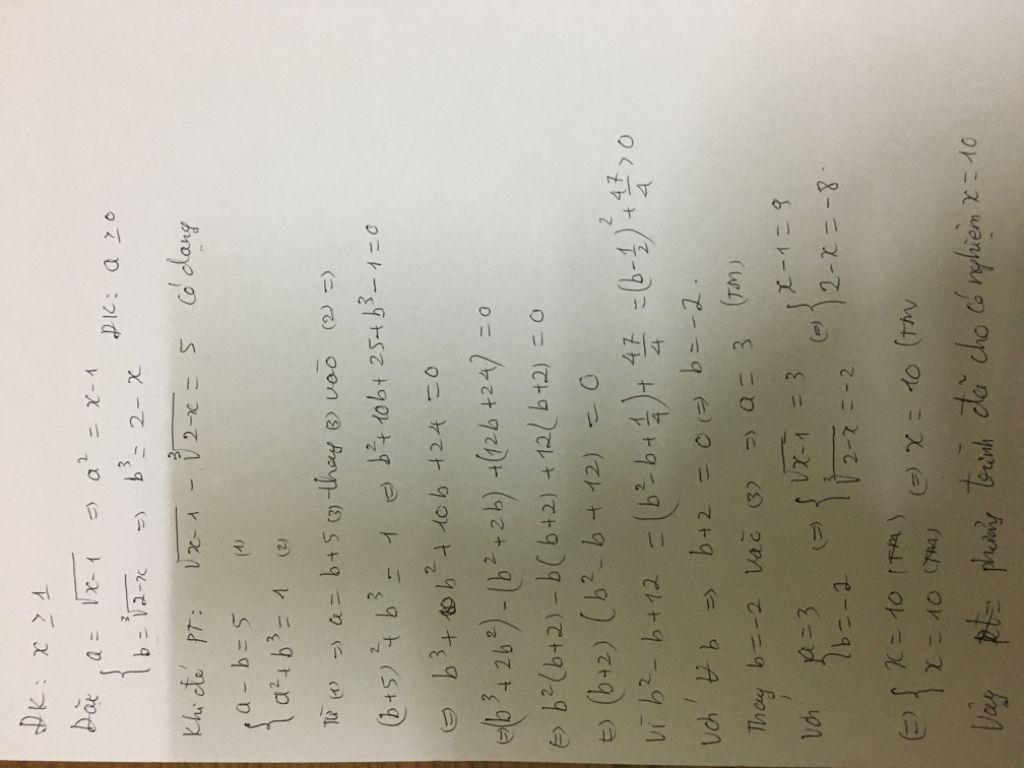 ĐK: x ≥ 1
Đặt { a = √(x-1) => a² = x-1 ĐK: a ≥ 0
{ b = ∛(2-x) => b³ = 2-x
Khi đó PT: √(x-1) - ∛(2-x) = 5 có dạng
{ a - b = 5 (1)
{ a² + b³ = 1 (2)
Từ (1) => a = b+5 (3) thay (3) vào (2) =>
(b+5)² + b³ = 1 (=) b² + 10b + 25 + b³ - 1 = 0
(=) b³ + b² + 10b + 24 = 0
(=) (b³ + 2b²) - (b² + 2b) + (12b + 24) = 0
(=) b²(b+2) - b(b+2) + 12(b+2) = 0
(=) (b+2)(b² - b + 12) = 0
Vì b² - b + 12 = (b² - b + 1/4) + 47/4 = (b - 1/2)² + 47/4 > 0
Với ∀ b => b+2 = 0 (=) b = -2.
Thay b = -2 vào (3) => a = 3 (TM)
Với { a = 3 (=) { √(x-1) = 3 (=) { x-1 = 9
{ b = -2 { ∛(2-x) = -2 { 2-x = -8.
(=) { x = 10 (TM) (=) x = 10 (TM
{ x = 10 (TM)
Vậy phương trình đã cho có nghiệm x = 10